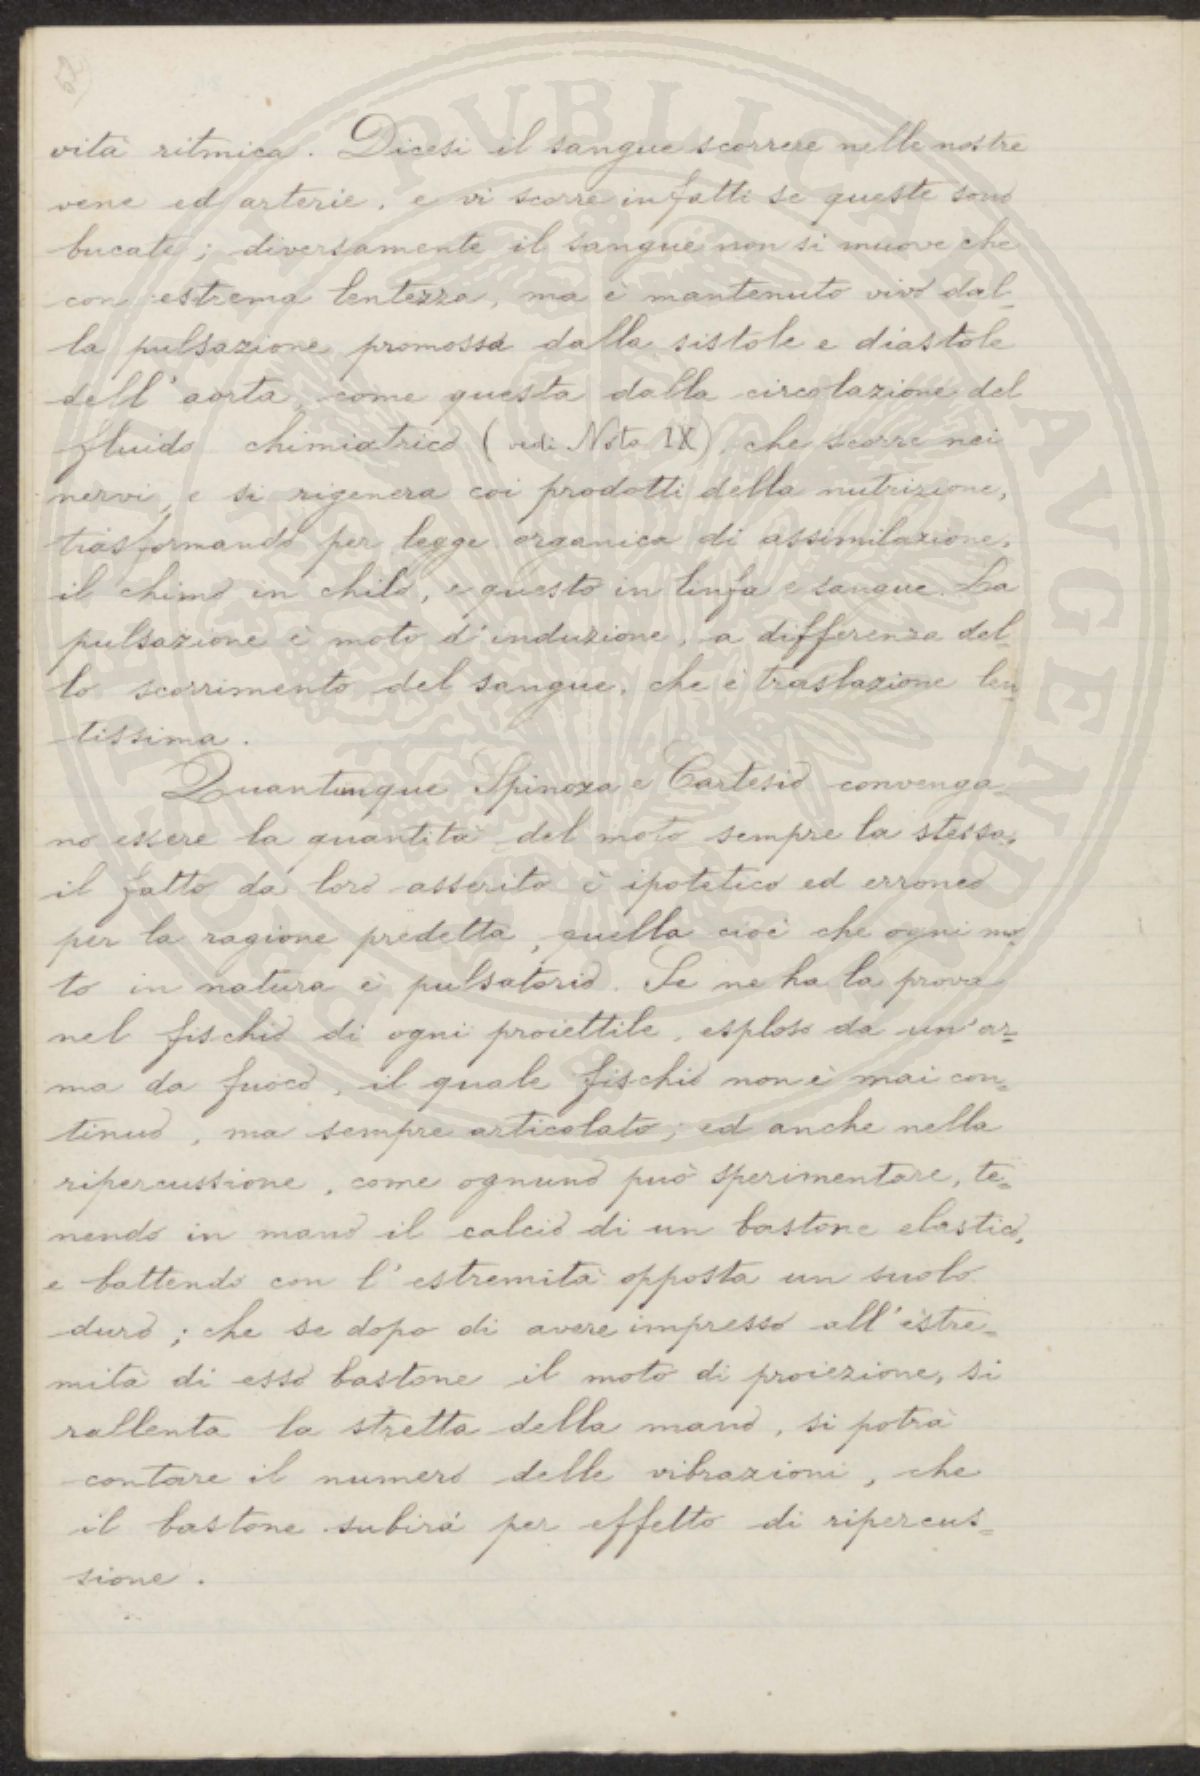 vità ritmica. Dicesi il sangue scorrere nelle nostre
vene ed arterie, e vi scorre infatti se queste sono
bucate; diversamente il sangue non si muove che
con estrema lentezza, ma è mantenuto vivo dal-
la pulsazione promossa dalla sistole e diàstole
dell'aorta, come questa dalla circolazione del
fluido chimiatrico (vedi Nota IX), che scorre nei
nervi, e si rigenera coi prodotti della nutrizione,
trasformando per legge organica di assimilazione,
il chimo in chilo, e questo in linfa e sangue. La
pulsazione è moto d'induzione, a differenza del-
lo scorrimento del sangue, che è traslazione len-
tissima.
Quantunque Spinoza e Cartesio convenga-
no essere la quantità del moto sempre la stessa,
il fatto da loro asserito è ipotetico ed erroneo
per la ragione predetta, quella cioè che ogni mo-
to in natura è pulsatorio. Se ne ha la prova
nel fischio di ogni proiettile, esploso da un'ar-
ma da fuoco, il quale fischio non è mai con-
tinuo, ma sempre articolato; ed anche nella
ripercussione, come ognuno può sperimentare, te-
nendo in mano il calcio di un bastone elastico,
e battendo con l'estremità opposta un suolo
duro; che se dopo di avere impresso all'estre-
mità di esso bastone il moto di proiezione, si
rallenta la stretta della mano, si potrà
contare il numero delle vibrazioni, che
il bastone subirà per effetto di ripercus-
sione.